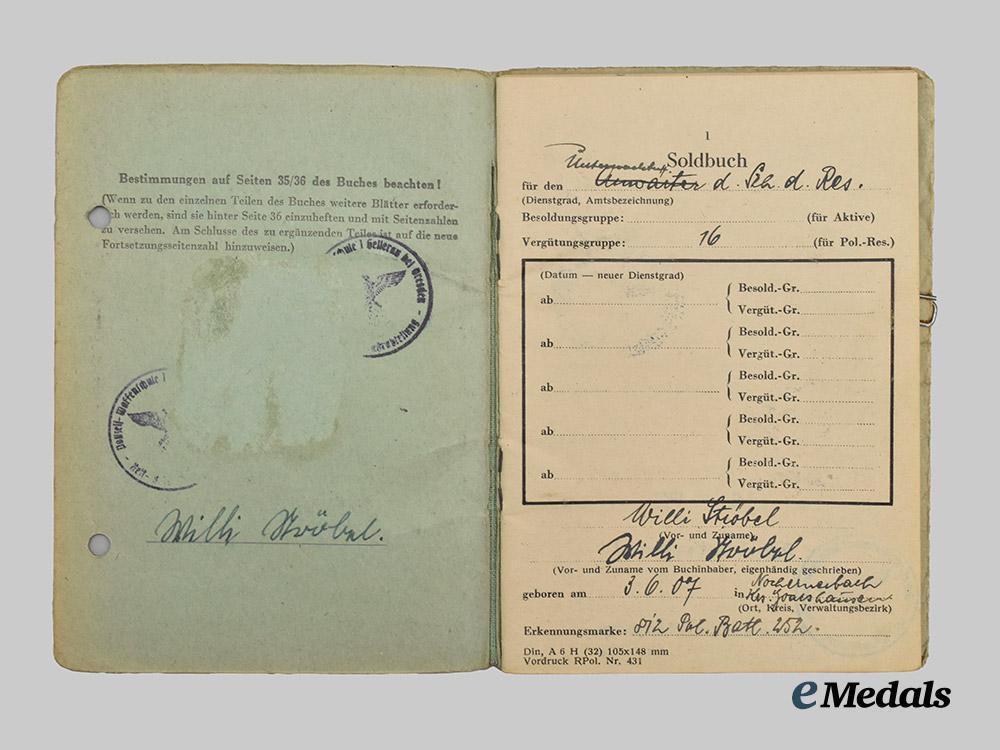 Bestimmungen auf Seiten 35/36 des Buches beachten!
(Wenn zu den einzelnen Teilen des Buches weitere Blätter erforder-
lich werden, sind sie hinter Seite 36 einzuheften und mit Seitenzahlen
zu versehen. Am Schlusse des zu ergänzenden Teiles ist auf die neue
Fortsetzungsseitenzahl hinzuweisen.)
Hellerau bei Dresden
Polizei-Waffenschule I
Willi Ströbel.
1
Soldbuch
für den Anwärter d. Sch. d. Res.
(Dienstgrad, Amtsbezeichnung)
Besoldungsgruppe: (für Aktive)
Vergütungsgruppe: 16 (für Pol.-Res.)
(Datum — neuer Dienstgrad)
ab Besold.-Gr.
Vergüt.-Gr.
ab Besold.-Gr.
Vergüt.-Gr.
ab Besold.-Gr.
Vergüt.-Gr.
ab Besold.-Gr.
Vergüt.-Gr.
ab Besold.-Gr.
Vergüt.-Gr.
Willi Ströbel
(Vor- und Zuname)
Willi Ströbel.
(Vor- und Zuname vom Buchinhaber, eigenhändig geschrieben)
geboren am 3.6.07 in
(Ort, Kreis, Verwaltungsbezirk)
Erkennungsmarke: Pol. Batl. 252.
Din, A 6 H (32) 105x148 mm
Vordruck RPol. Nr. 431
eMedals